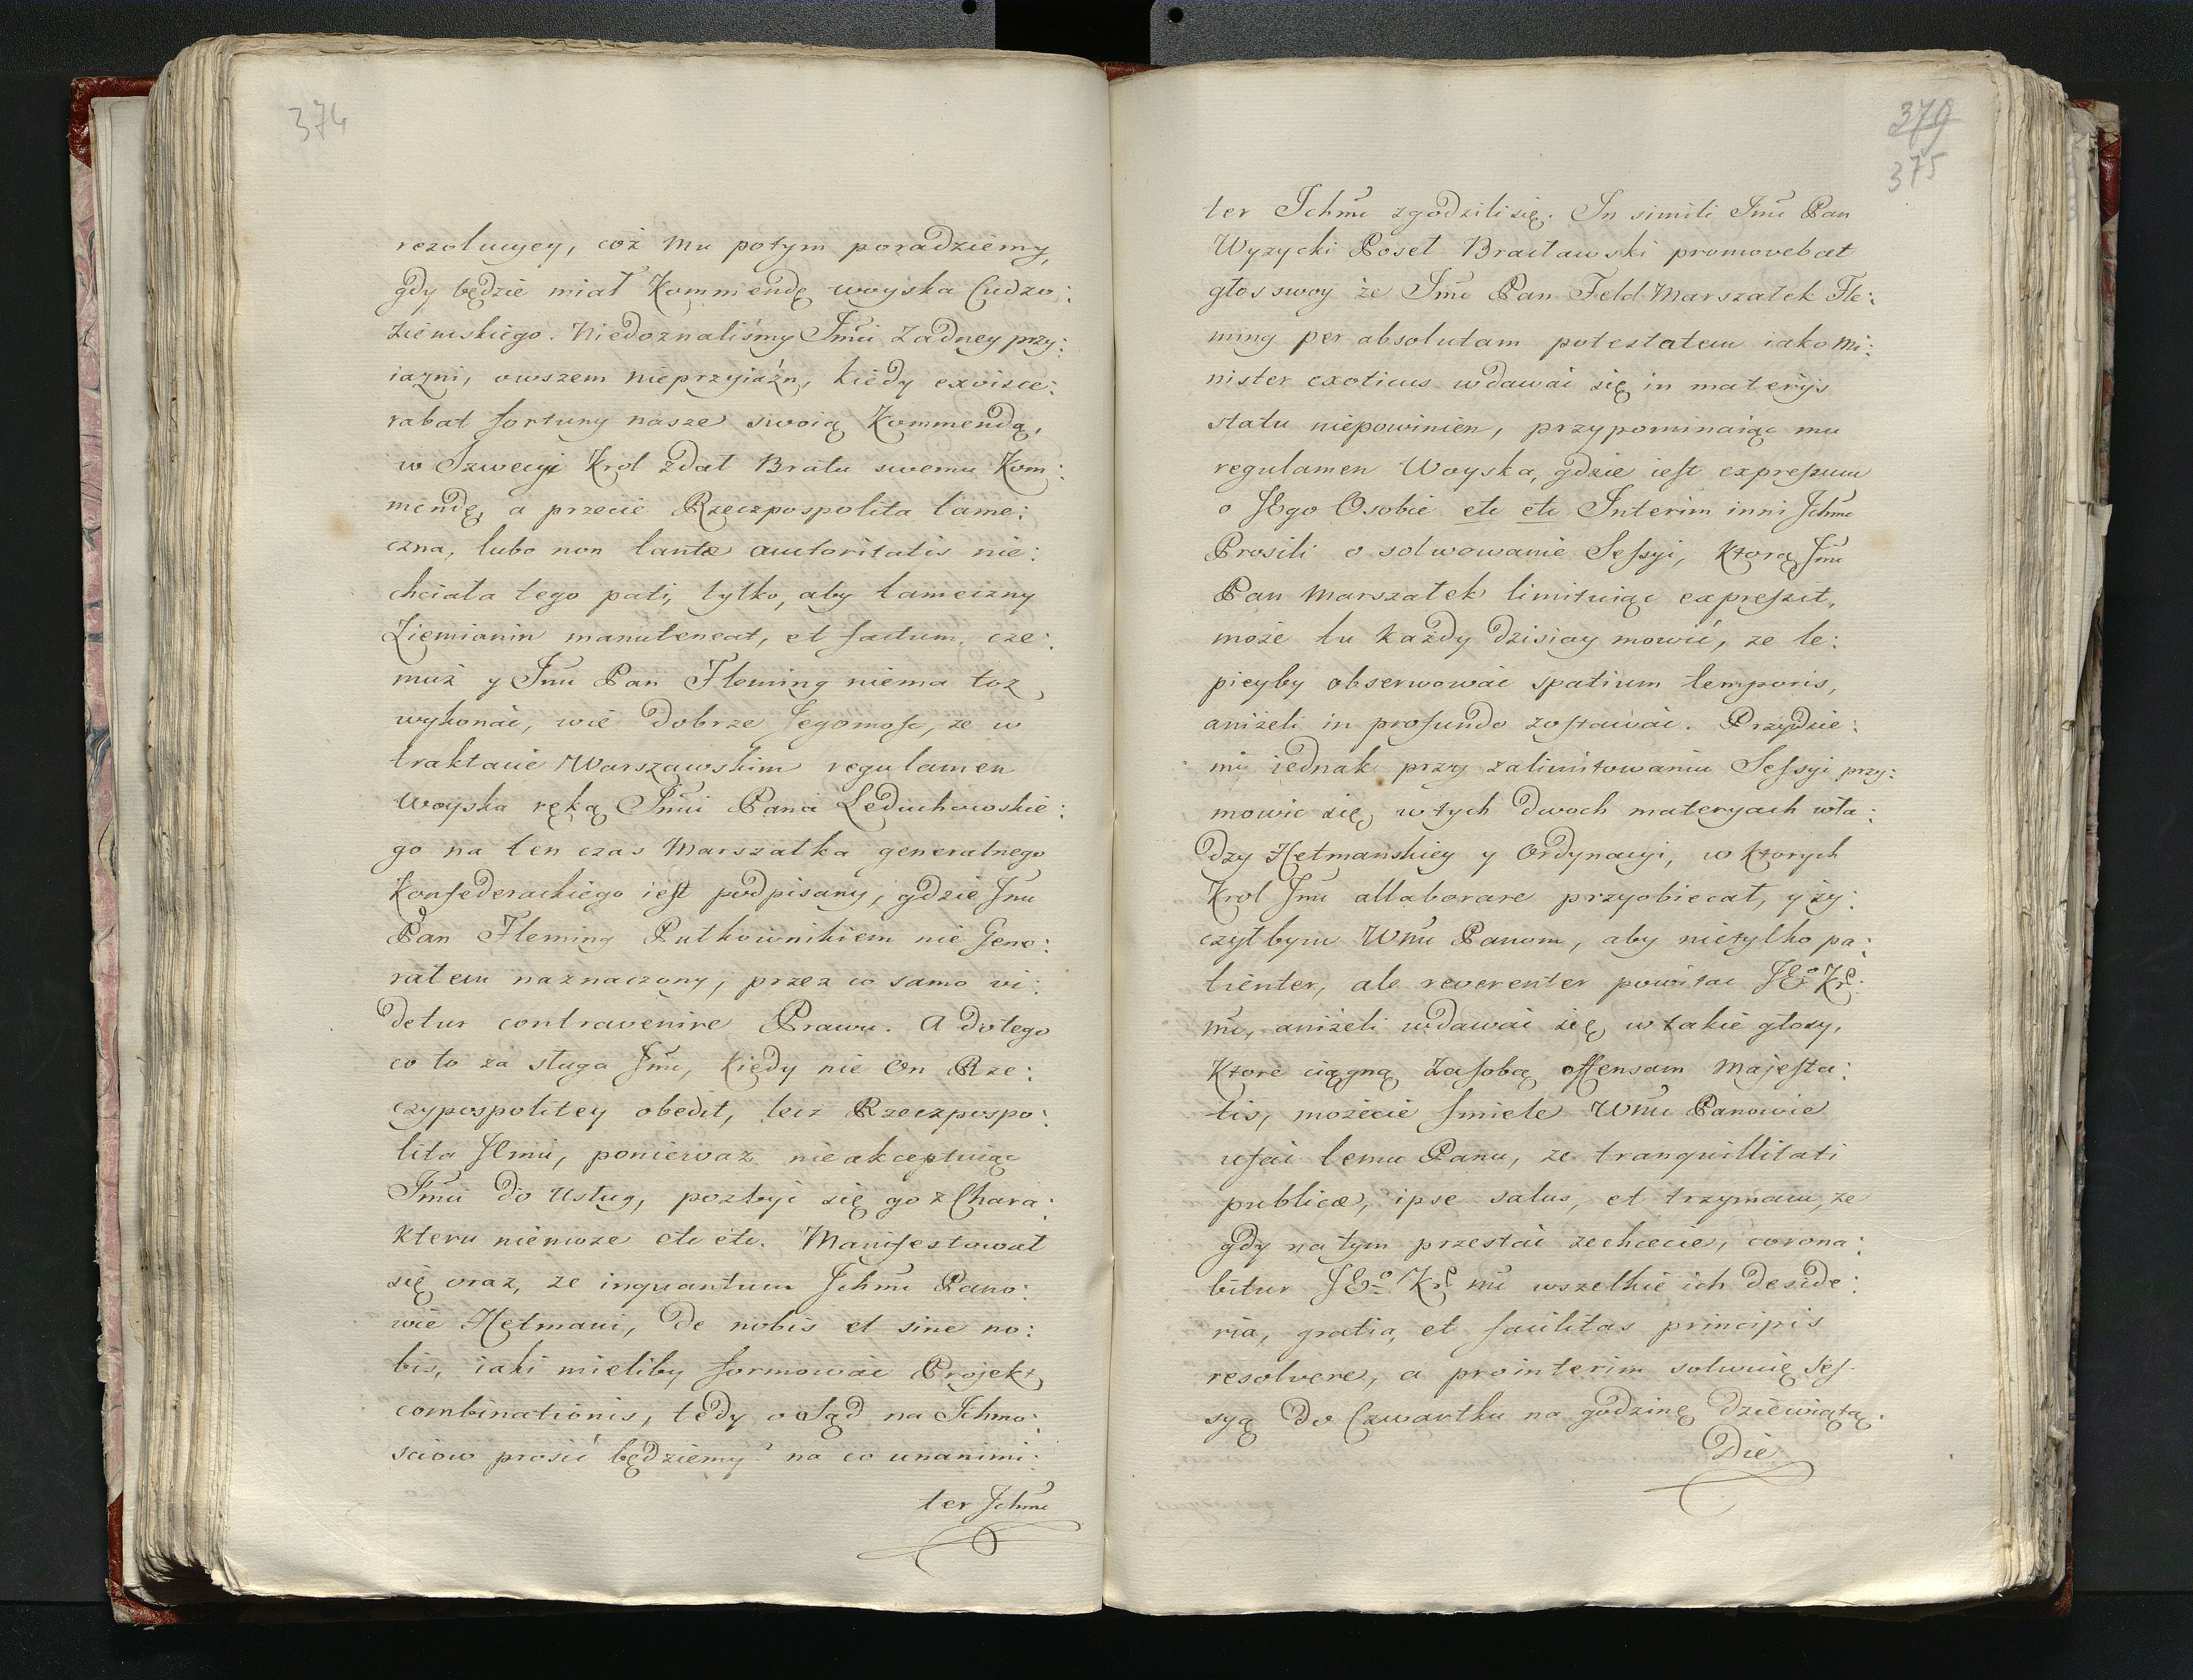 374
rezolucyey, coż mu potym poradziemy,
gdy będzie miał Kommendę woyska Cudzo:
ziemskiego. Niedoznaliśmy Jmći Żadney przy:
iaźni, owszem nieprzyiaźń, kiedy exvisce:
rabat fortuny nasze swoią Kommendą,
w Szwecyi Krol zdał Bratu swemu Kom:
mendę, a przecie Rzeczpospolita tame:
czna, lubo non tantæ autoritatis nie:
chciała tego pati, tylko, aby tameczny
Ziemianin manuteneat, et factum, cze:
muż y Jmć Pan Fleming niema toż
wykonać, wie dobrze Jegomość, że w
traktacie Warszawskim regulamen
Woyska ręką Jmći Pana Leduchowskie:
go na ten czas Marszałka generalnego
Konfederackiego iest podpisany, gdzie Jmć
Pan Fleming Pułkownikiem nie Gene:
rałem naznaczony, przez co samo vi:
detur contravenire Prawu. A do tego
co to za sługa Jmć, kiedy nie On Rze:
czypospolitey obedit, lecz Rzeczpospo:
lita Jemu, ponieważ nieakceptuiąc
Jmći do Usług, pozbyć się go z Chara:
kteru niemoże etc etc. Manifestował
się oraz, że inquantum Jchmć Pano:
wie Hetmani, de nobis et sine no:
bis, iaki mieliby formować Projekt
combinationis, tedy o Sąd na Jchmo:
sciow prosić będziemy? na co unanimi:
ter Jchmć
379
375
ter Jchmć zgodzili się. In simili Jmć Pan
Wyzycki Poseł Bracławski promovebat
głos swoy że Jmć Pan Feld Marszałek Fle:
ming per absolutam potestatem iako Mi:
nister exoticus wdawać się in materijs
statu niepowinien, przypominaiąc mu
regulamen Woyska, gdzie iest expressum
o JEgo Osobie etc etc Interim inni Jchmć
Prosili o solwowanie Sessyi, ktorą Jmć
Pan Marszałek limituiąc expressit,
może tu każdy dzisiay mowić, że le:
pieyby obserwować spatium temporis,
aniżeli in profundo zostawać. Przydzie:
my iednak przy zalimitowaniu Sessyi przy:
mowić się, w tych dwoch materyach wła:
dzy Hetmanskiey y Ordynacyi, w ktorych
Krol Jmć allaborare przyobiecał, y ży:
czyłbym WMć Panom, aby nietylko pa:
tienter, ale reverenter powitać JEo Kr:
mć, aniżeli wdawać się w takie głosy,
Ktore ciągną zasobą offensam Majesta:
tis, możecie smiele WMć Panowie
ufać temu Panu, że tranquillitati
publicæ, ipse salus, et trzymam, że
gdy na tym przestać zechcecie, corona:
bitur JEo Kr mć wszelkie ich deside:
ria, gratia et facilitas principis
resolvere, a prointerim solwuię Ses:
syą do Czwartku na godzinę dziewiątą.
Die